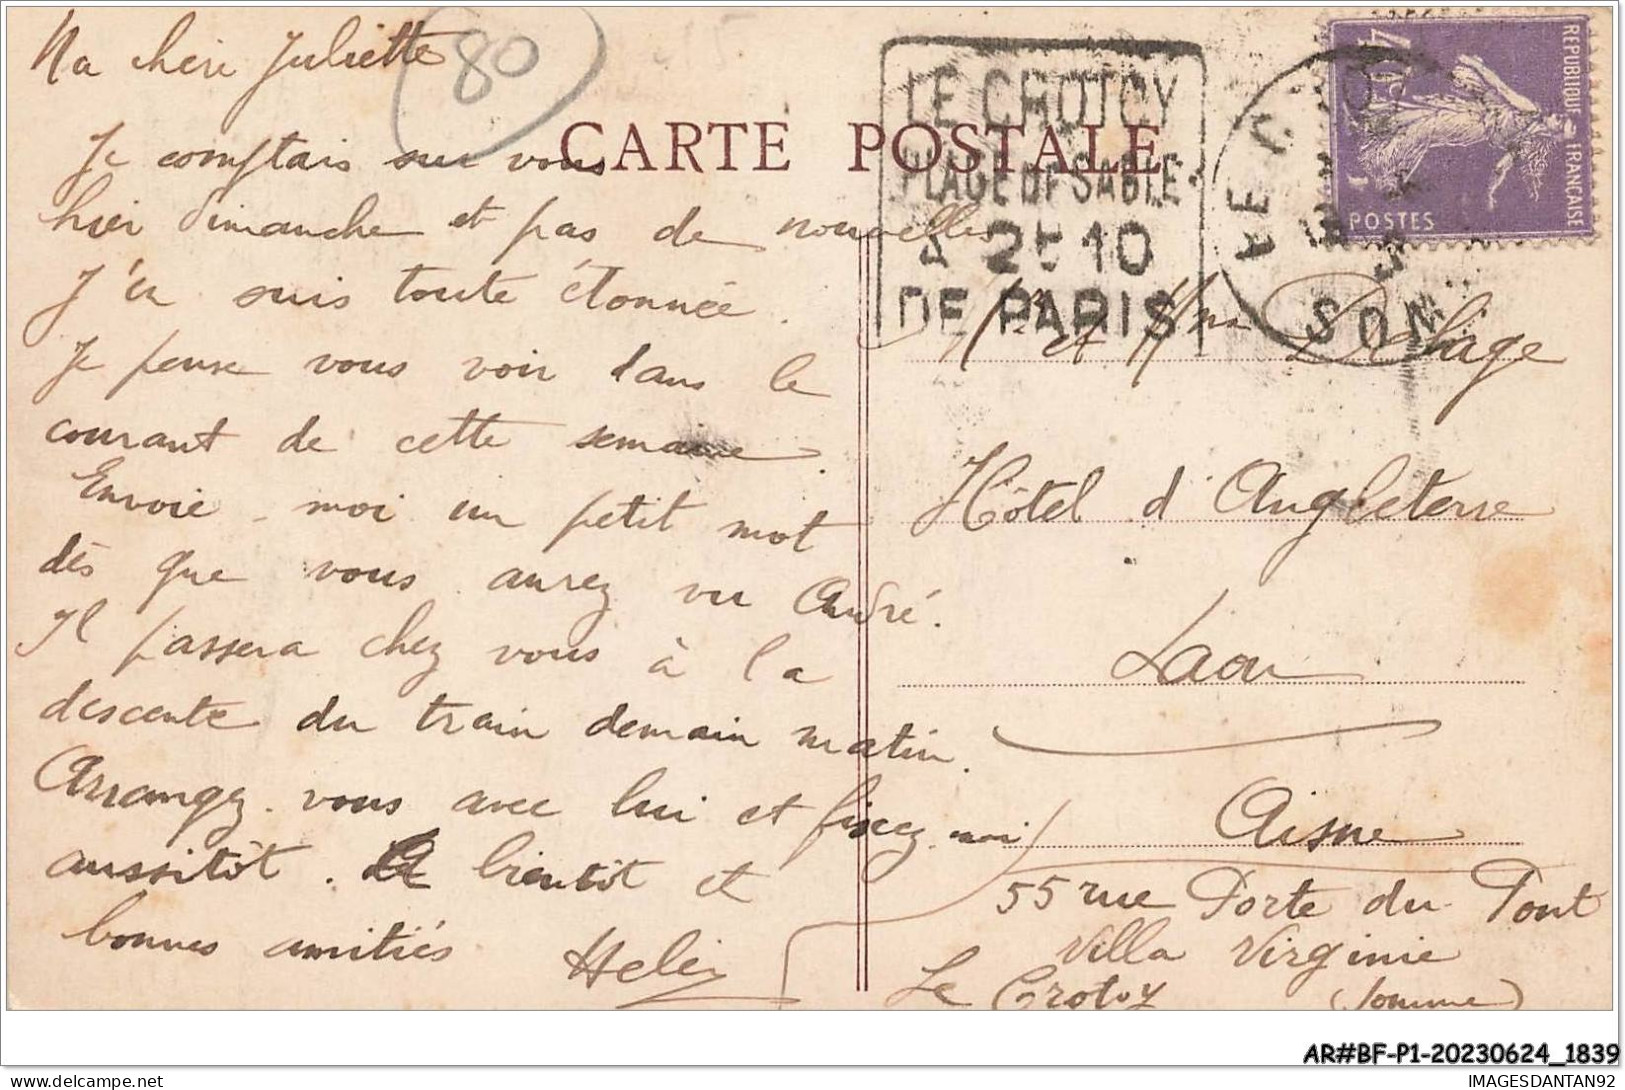 Ma chère Juliette
80
Je comptais sur vous
hier dimanche et pas de nouvelles
J'en suis toute étonnée.
Je pense vous voir dans le
courant de cette semaine.
Envoie-moi un petit mot
dès que vous aurez vu André.
Il passera chez vous à la
descente du train demain matin.
Arrangez-vous avec lui et fixez-moi
aussitôt. A bientôt et
bonnes amitiés
CARTE POSTALE
LE CROTOY
PLAGE DE SABLE
A 2h10
DE PARIS
LE C
SOM
REPUBLIQUE FRANÇAISE
40c
POSTES
Mr et Mme Delage
Hôtel d'Angleterre
Laon
Aisne
55 rue Porte du Pont
Villa Virginie
Le Crotoy (Somme)
AR#BF-P1-20230624_1839
delcampe.net
IMAGESDANTAN92